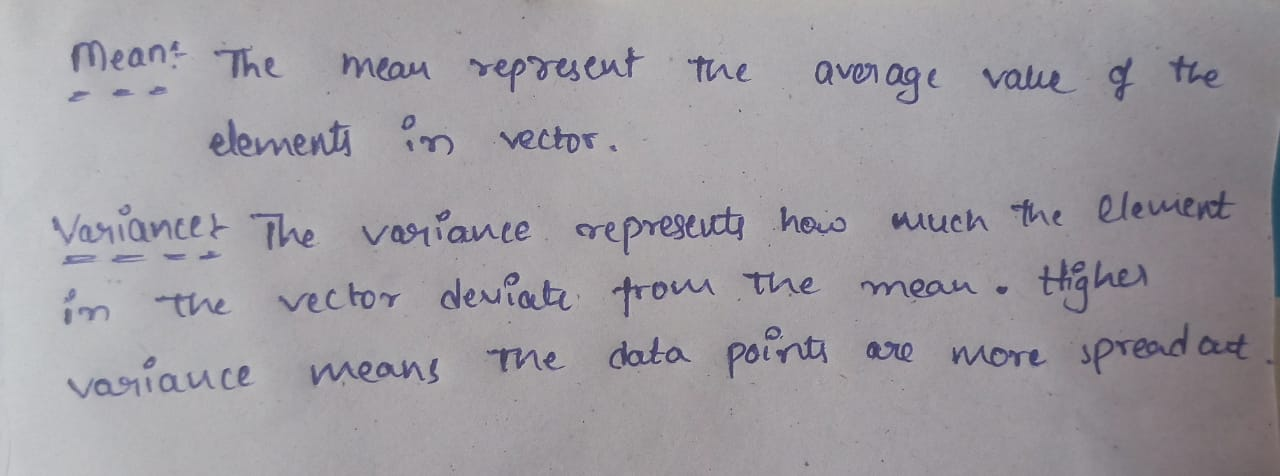 Mean:- The mean represent the average value of the
elements in vector.
Variance:- The variance represents how much the element
in the vector deviate from the mean. Higher
variance means the data points are more spread out.